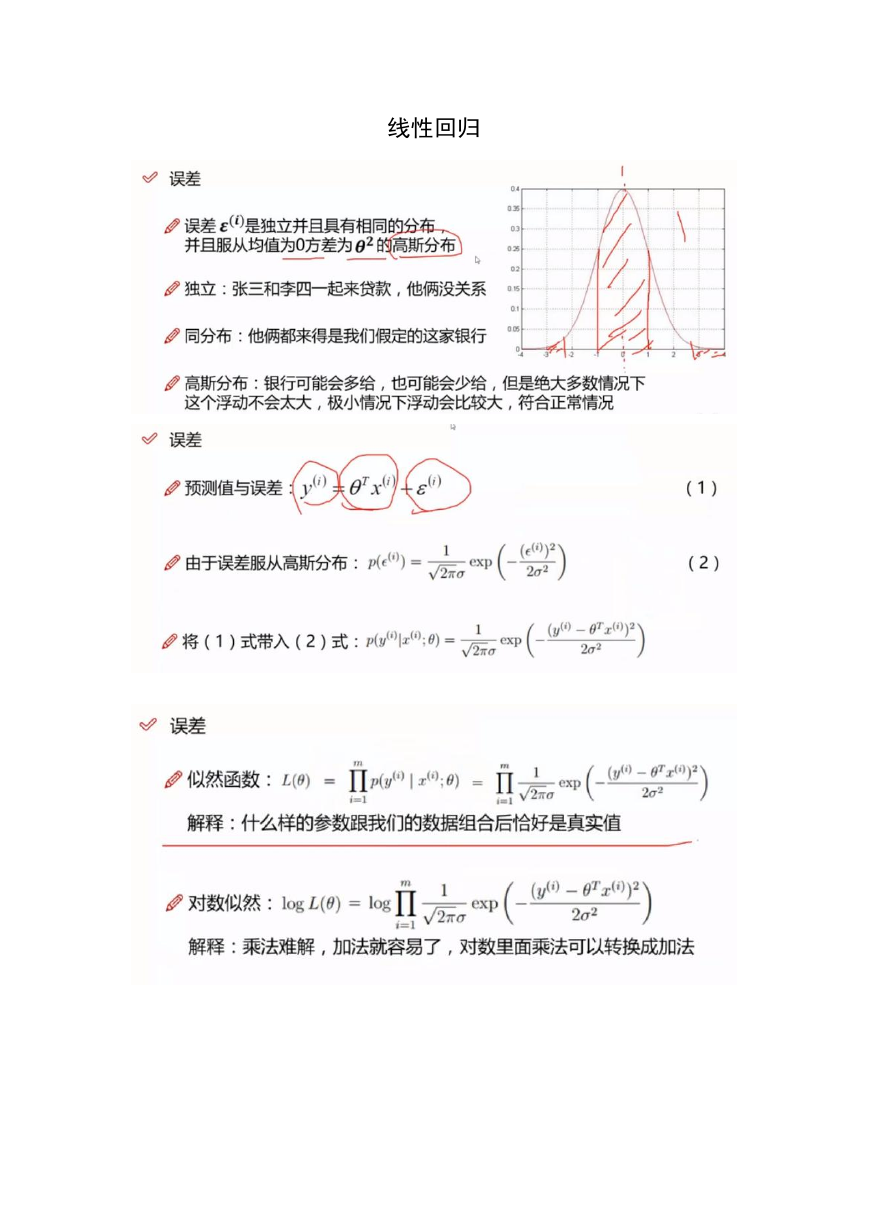 线性回归
误差
误差 ε^(i)是独立并且具有相同的分布，
并且服从均值为0方差为θ²的高斯分布
独立：张三和李四一起来贷款，他俩没关系
同分布：他俩都来得是我们假定的这家银行
高斯分布：银行可能会多给，也可能会少给，但是绝大多数情况下
这个浮动不会太大，极小情况下浮动会比较大，符合正常情况
0.4
0.35
0.3
0.25
0.2
0.15
0.1
0.05
0
-4 -3 -2 -1 0 1 2
误差
预测值与误差：y^(i) = θ^T x^(i) + ε^(i) （1）
由于误差服从高斯分布：p(ϵ^(i)) = 1/(√(2π)σ) exp(−(ϵ^(i))²/(2σ²)) （2）
将（1）式带入（2）式：p(y^(i)|x^(i); θ) = 1/(√(2π)σ) exp(−(y^(i) − θ^T x^(i))²/(2σ²))
误差
似然函数：L(θ) = ∏_{i=1}^{m} p(y^(i) | x^(i); θ) = ∏_{i=1}^{m} 1/(√(2π)σ) exp(−(y^(i) − θ^T x^(i))²/(2σ²))
解释：什么样的参数跟我们的数据组合后恰好是真实值
对数似然：log L(θ) = log ∏_{i=1}^{m} 1/(√(2π)σ) exp(−(y^(i) − θ^T x^(i))²/(2σ²))
解释：乘法难解，加法就容易了，对数里面乘法可以转换成加法